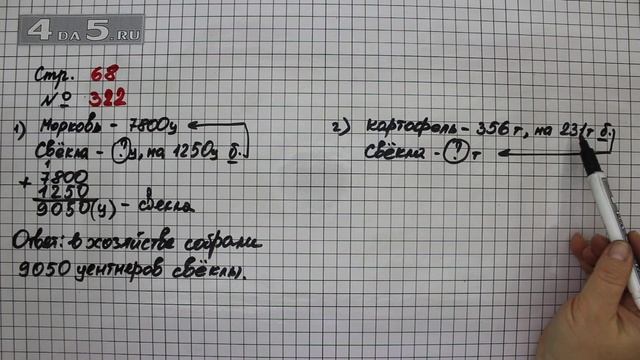 4 DA 5.RU
Стр. 68
№ 322
1) Морковь - 7800ц
Свёкла - ? ц, на 1250ц б.
1
+ 7800
1250
9050 (ц) - свёкла
Ответ: в хозяйстве собрали
9050 центнеров свёклы.
2) Картофель - 356 т, на 231т б.
Свёкла - ? т